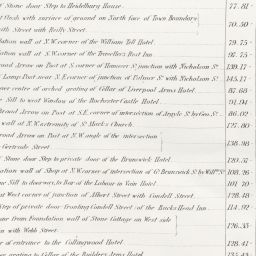 Stone door Step to Heidelburg House 77.81
Bolt flush with surface of ground on North face of Town Boundary
Street with Reilly Street 70.50
dation wall at N.W. corner of the William Tell Hotel 79.75
dation wall at S.W. corner of the Travellers Rest Inn 97.75
road Arrow on Post at S. corner of Hanover St junction with Nicholson St 139.17
Lamp Post near N.E. corner of junction of Palmer St with Nicholson St 145.17
over centre of arched grating of Cellar of Liverpool Arms Hotel 87.68
Sill to west Window of the Rochester Castle Hotel 91.94
Broad Arrow on Post at S.E. corner of intersection of Argyle St & Geo. St 86.02
wall at N.W. extremity of St Marks Church 127.80
road Arrow on Post at N.W. angle of the intersection
Gertrude Street 138.98
Stone door Step to private door of the Brunswick Hotel 120.57
dation wall of Shop at N.W. corner of intersection of Gt Brunswick St & Wm St 108.26
Sill to doorway, to Bar of the Labour in Vain Hotel 101.70
at West corner of junction of Albert Street with Condell Street 128.48
Step of private door fronting Condell Street of the Bucks Head Inn 114.92
from Foundation wall of Stone Cottage on West side
with Webb Street 126.35
of entrance to the Collingwood Hotel 128.41
grating to Cellar of the Builders Arms Hotel